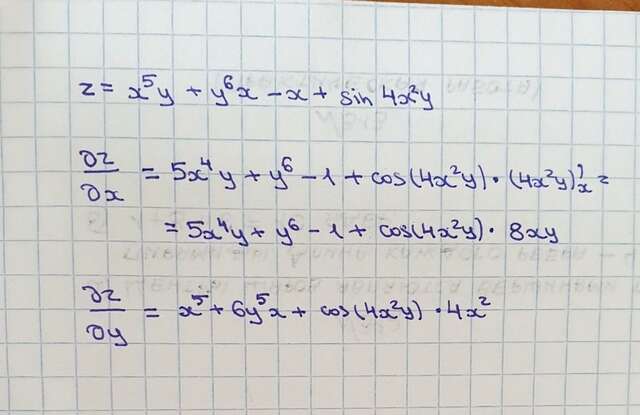 z = x⁵y + y⁶x - x + sin 4x²y
∂z/∂x = 5x⁴y + y⁶ - 1 + cos(4x²y) · (4x²y)'ₓ =
= 5x⁴y + y⁶ - 1 + cos(4x²y) · 8xy
∂z/∂y = x⁵ + 6y⁵x + cos(4x²y) · 4x²